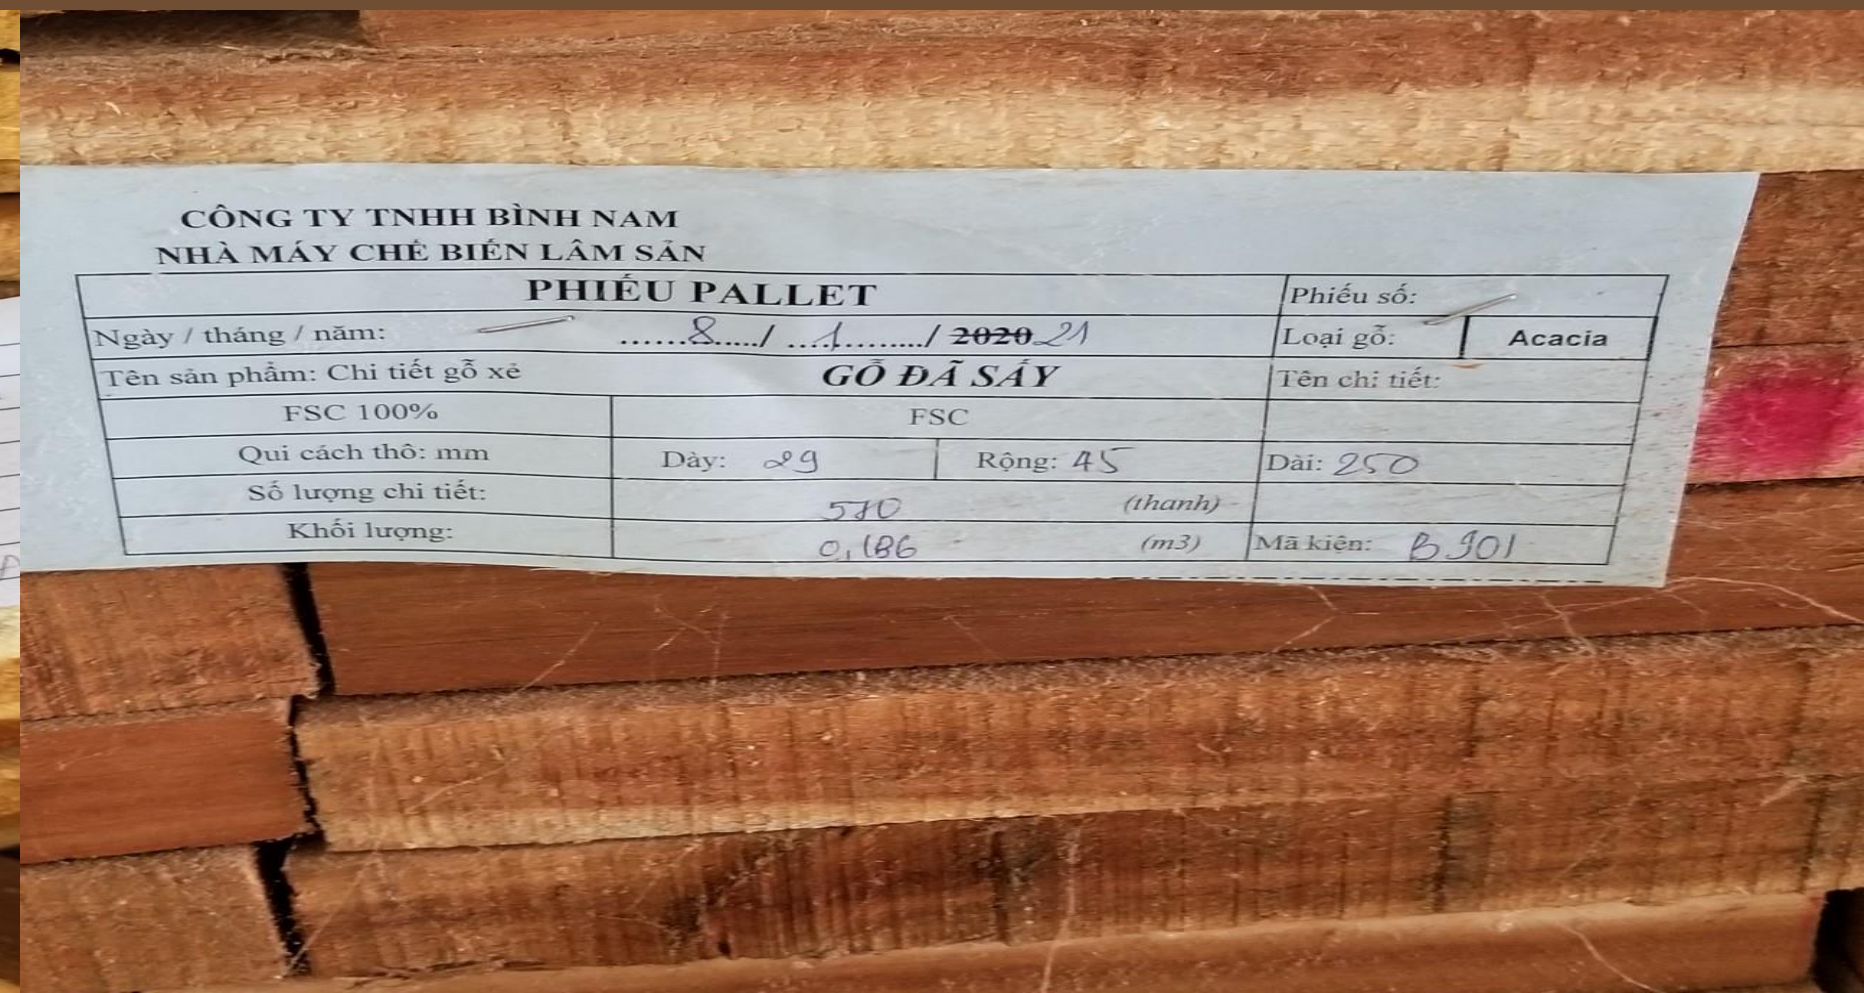 CÔNG TY TNHH BÌNH NAM
NHÀ MÁY CHẾ BIẾN LÂM SẢN
PHIẾU PALLET Phiếu số:
Ngày / tháng / năm: ......8...../ ...1......../ 2020 21 Loại gỗ: Acacia
Tên sản phẩm: Chi tiết gỗ xẻ GỖ ĐÃ SẤY Tên chi tiết:
FSC 100% FSC
Qui cách thô: mm Dày: 29 Rộng: 45 Dài: 250
Số lượng chi tiết: 570 (thanh)
Khối lượng: 0,186 (m3) Mã kiện: B901